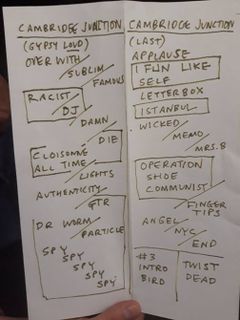 CAMBRIDGE JUNCTION
(GYPSY LOUD)
OVER WITH
SUBLIM
FAMOUS
RACIST
DJ
DAMN
DIE
CLOISONNE
ALL TIME
LIGHTS
AUTHENTICITY
GTR
DR WORM
PARTICLE
SPY
SPY
SPY
SPY
SPY
CAMBRIDGE JUNCTION
(LAST)
APPLAUSE
I FUN LIKE
SELF
LETTERBOX
ISTANBUL
WICKED
MEMO
MRS. B
OPERATION
SHOE
COMMUNIST
FINGER
TIPS
ANGEL
NYC
END
#3
INTRO
BIRD
TWIST
DEAD